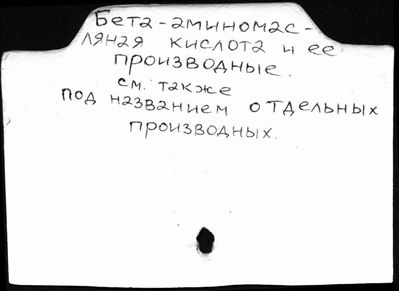 Бета-аминомас-
ляная кислота и ее
производные.
см. также
под названием отдельных
производных.